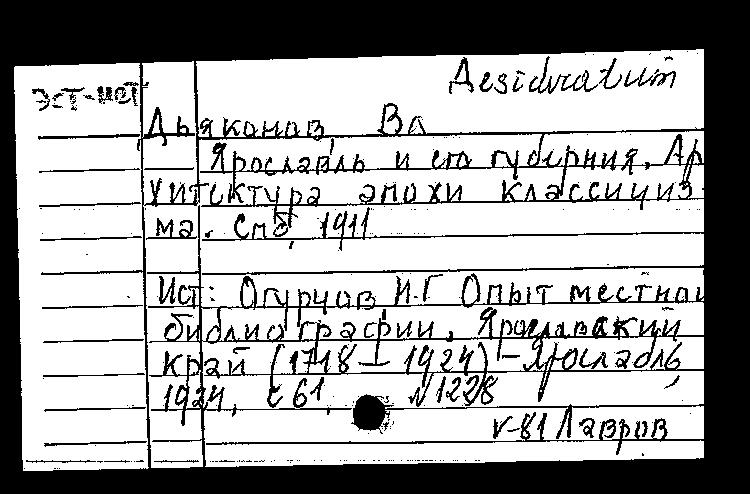 Desideratum
эст-мет
Дьяконов, Вл
Ярославль и его губерния. Ар
хитектура эпохи классициз-
ма. Спб, 1911
Ист: Огурцов, И.Г Опыт местной
библиографии. Ярославский
край (1718 – 1924) – Ярославль,
1924, с 61, N 1228
V-81 Лавров